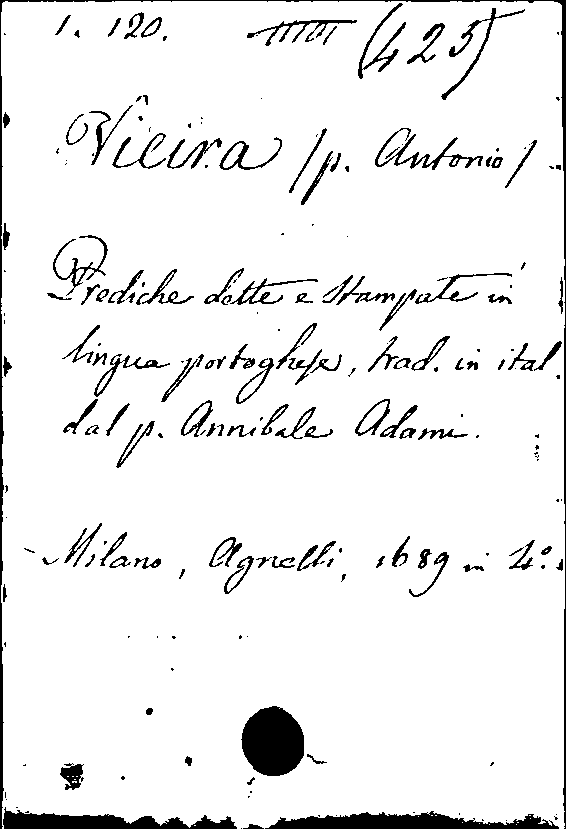 1. 120. (425)
Vieira /p. Antonio/
Prediche dette e stampate in
lingua portoghese, trad. in ital.
dal p. Annibale Adami.
Milano, Agnelli, 1689 in 4º.